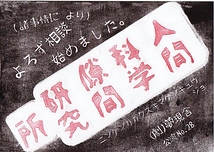 (諸事情により)
よろず相談
始めました。
人間
科学
隙間
研究
所
ニンゲンカガクスキマケンキュウ
ジョ
(財)夢現舎
公演No.28